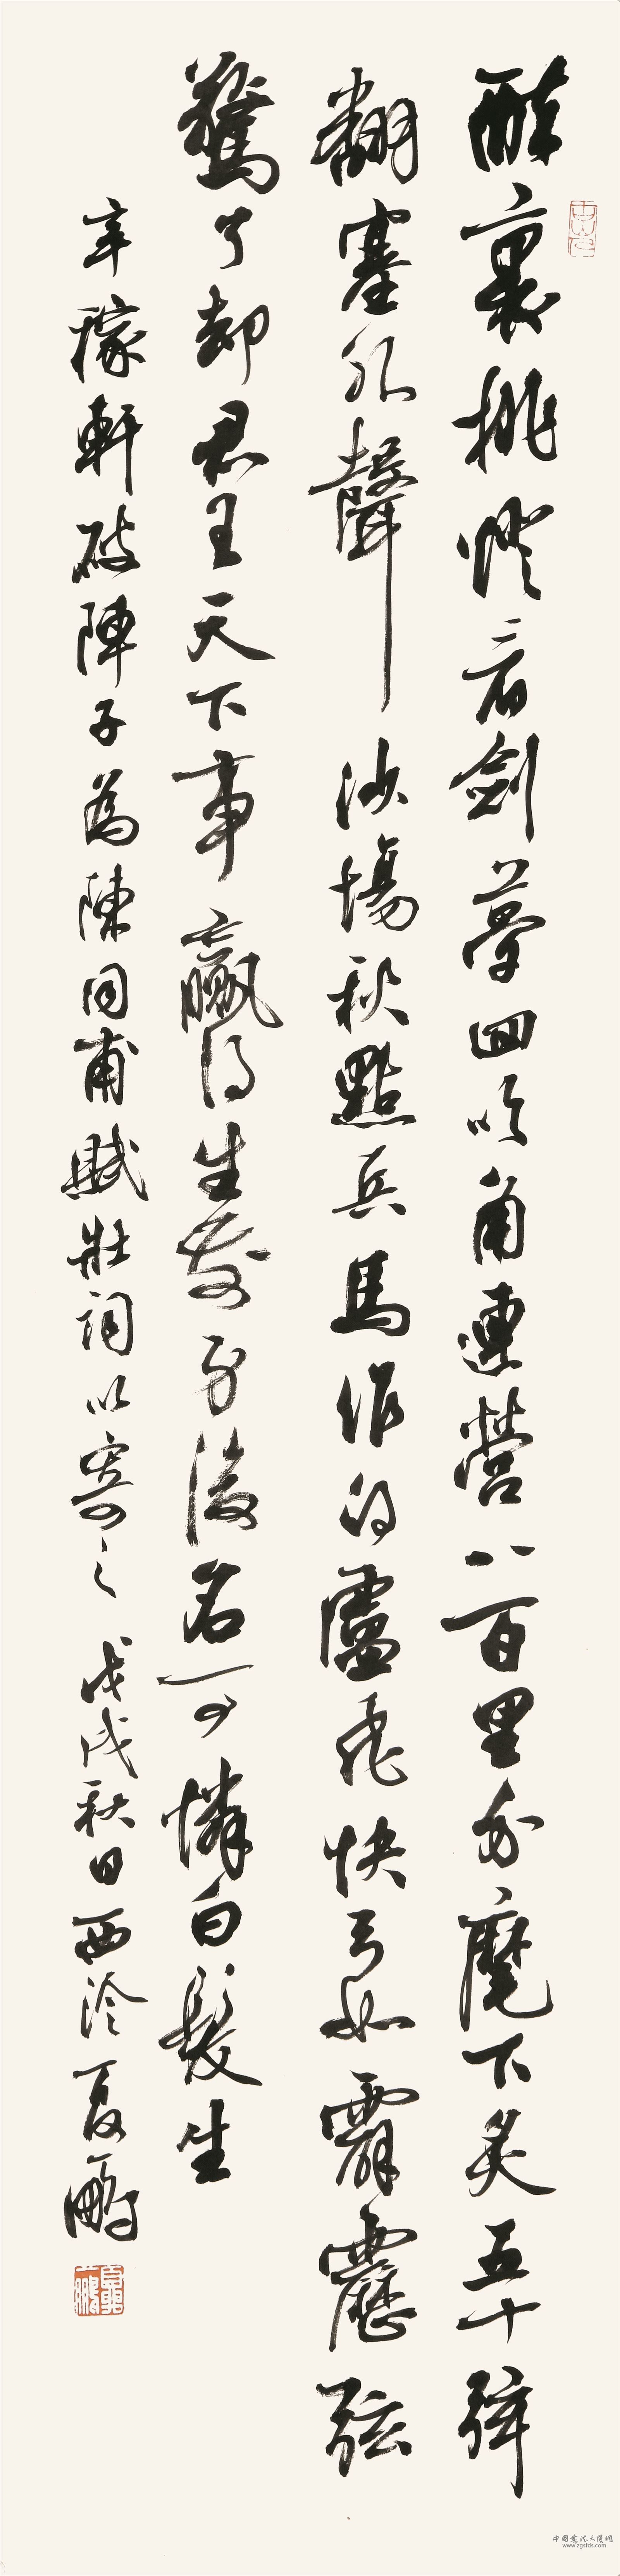 醉裏挑燈看劍夢回吹角連營八百里分麾下炙五十弦
翻塞外聲沙場秋點兵馬作的盧飛快弓如霹靂弦
驚了却君王天下事贏得生前身後名可憐白髮生
辛稼軒破陣子為陳同甫賦壯詞以寄之戊戌秋日西泠夏鵬
www.zgsfds.com